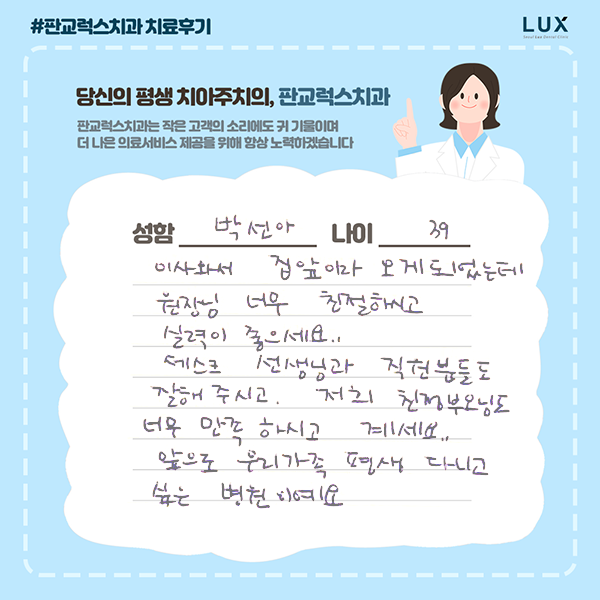 #판교럭스치과 치료후기
LUX
Seoul Lux Dental Clinic
당신의 평생 치아주치의, 판교럭스치과
판교럭스치과는 작은 고객의 소리에도 귀 기울이며
더 나은 의료서비스 제공을 위해 항상 노력하겠습니다
성함 박선아 나이 39
이사와서 집앞이라 오게되었는데
원장님 너무 친절하시고
실력이 좋으세요..
데스크 선생님과 직원분들도
잘해 주시고. 저희 친정부모님도
너무 만족 하시고 계세요..
앞으로 우리가족 평생 다니고
싶은 병원이예요